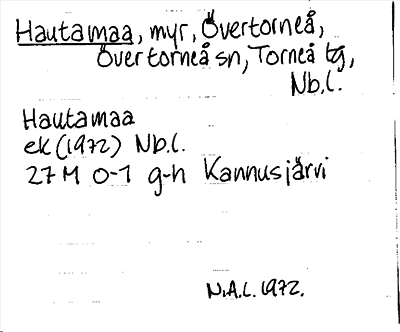 Hautamaa, myr, Övertorneå,
Övertorneå sn, Torneå tg,
Nb.l.
Hautamaa
ek (1972) Nb.l.
27 M 0-1 g-h Kannusjärvi
N.A.L. 1972.